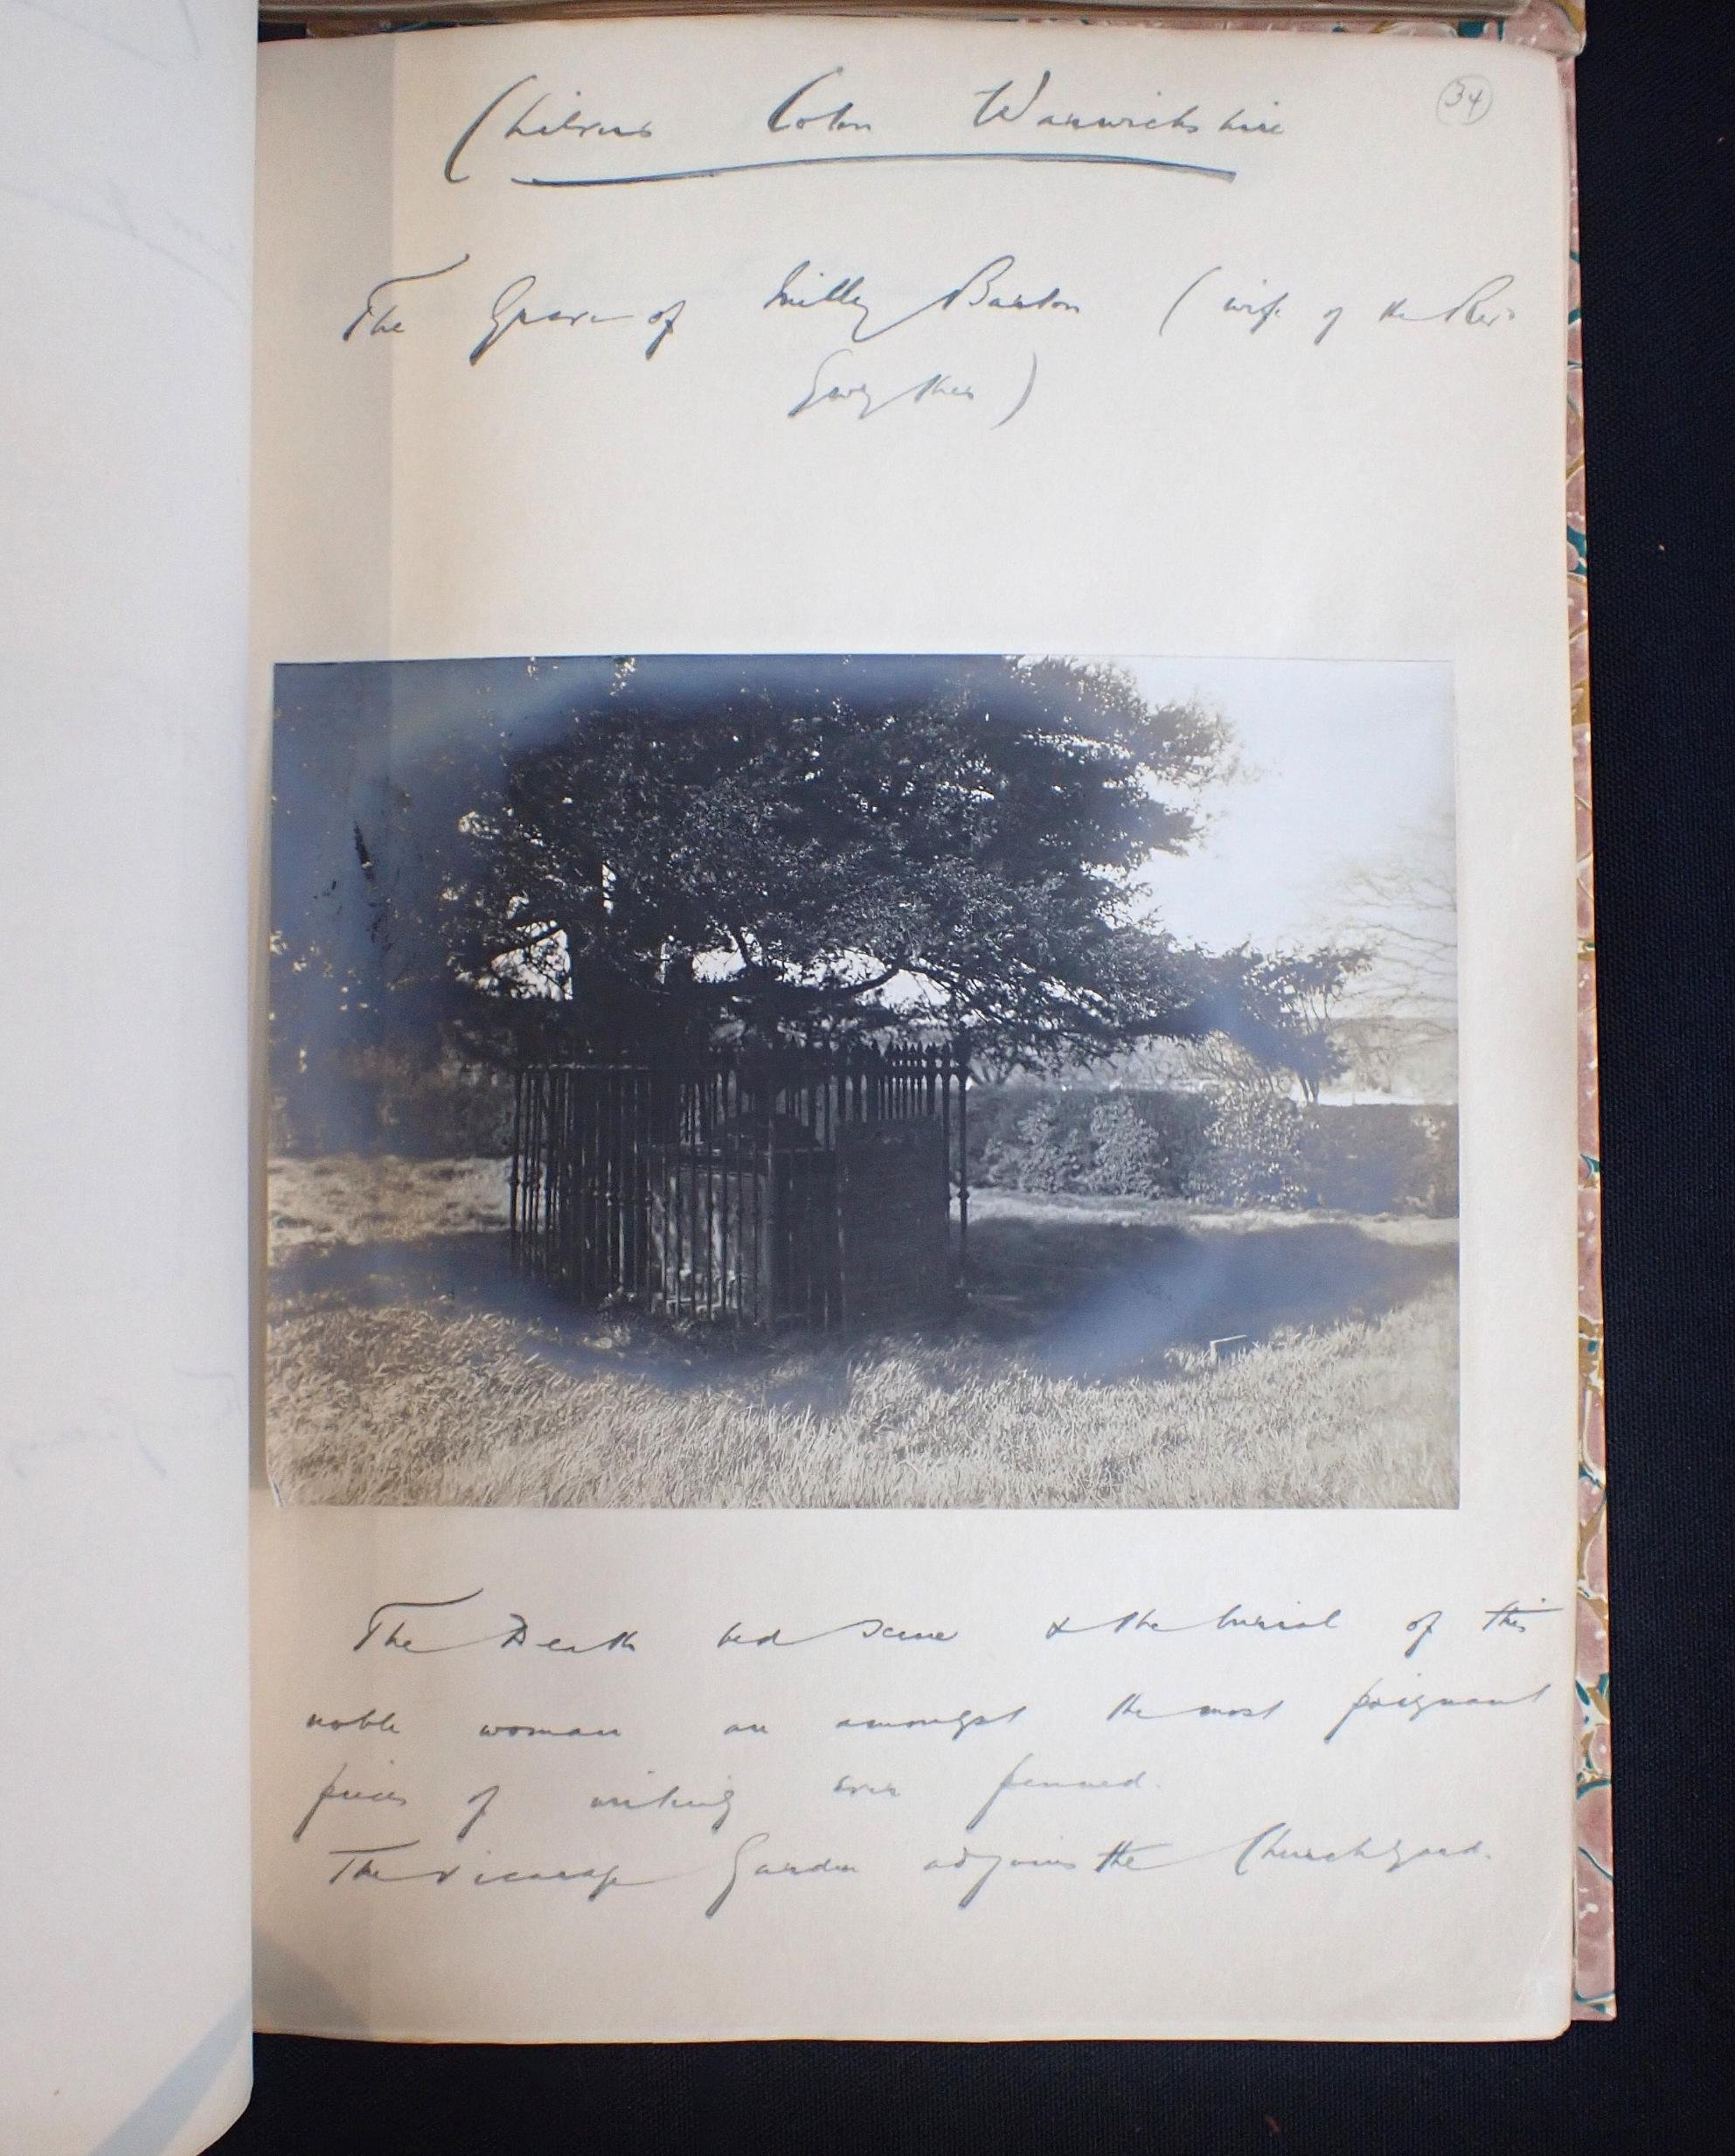 Chilvers Coton Warwickshire
34
The Grave of Milly Barton (wife of the Rev
Gwyther)
The Death bed scene & the burial of this
noble woman are amongst the most poignant
pieces of writing ever penned.
The vicarage Garden adjoins the Churchyard.